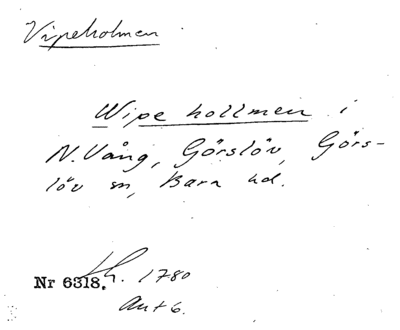 Vipeholmen
Wipe hollmen i
N. Vång, Görslöv, Görs-
löv sn, Bara hd.
Nr 6318. Lh. 1780
Akt 6.